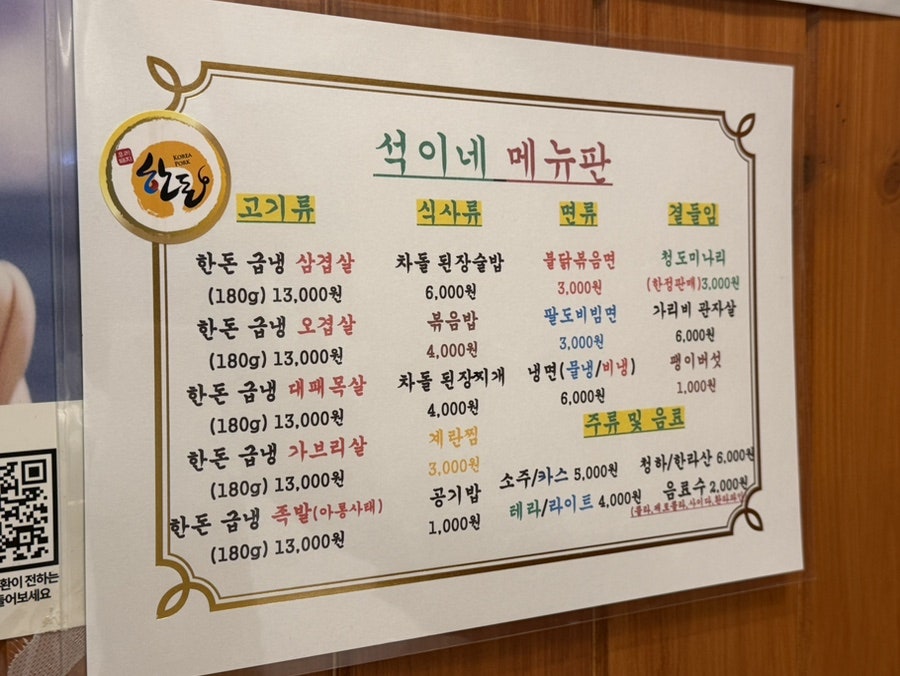 석이네 메뉴판
KOREA
PORK
한돈
고기류
한돈 급냉 삼겹살
(180g) 13,000원
한돈 급냉 오겹살
(180g) 13,000원
한돈 급냉 대패목살
(180g) 13,000원
한돈 급냉 가브리살
(180g) 13,000원
한돈 급냉 족발(아롱사태)
(180g) 13,000원
식사류
차돌 된장술밥
6,000원
볶음밥
4,000원
차돌 된장찌개
4,000원
계란찜
3,000원
공기밥
1,000원
면류
불닭볶음면
3,000원
팔도비빔면
3,000원
냉면(물냉/비냉)
6,000원
곁들임
청도미나리
(한정판매)3,000원
가리비 관자살
6,000원
팽이버섯
1,000원
주류 및 음료
소주/카스 5,000원
테라/라이트 4,000원
청하/한라산 6,000원
음료수 2,000원
(콜라,제로콜라,사이다,환타파인)
환이 전하는
들어보세요